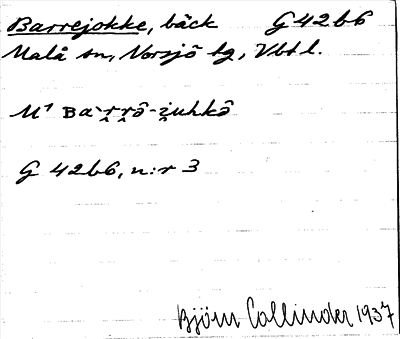 Barrejokke, bäck G 42 b 6
Malå sn, Norsjö tg, Vbt l.
M¹ Ba`r̯r̯ô-i̯uhkô
G 42 b 6, n:r 3
Björn Collinder 1937